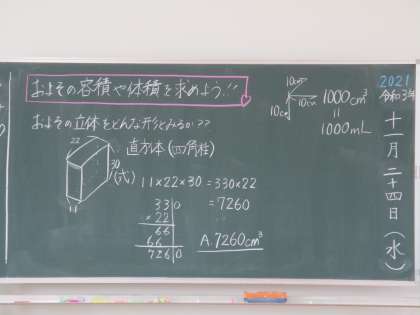 2021
令和3年
十一月二十四日(水)
およその容積や体積を求めよう!!
およその立体をどんな形とみるか??
22
30
11
直方体(四角柱)
(式) 11×22×30=330×22
=7260
330
×22
66
66
7260
A.7260cm³
10cm
10cm
10cm
1000cm³
=
1000mL